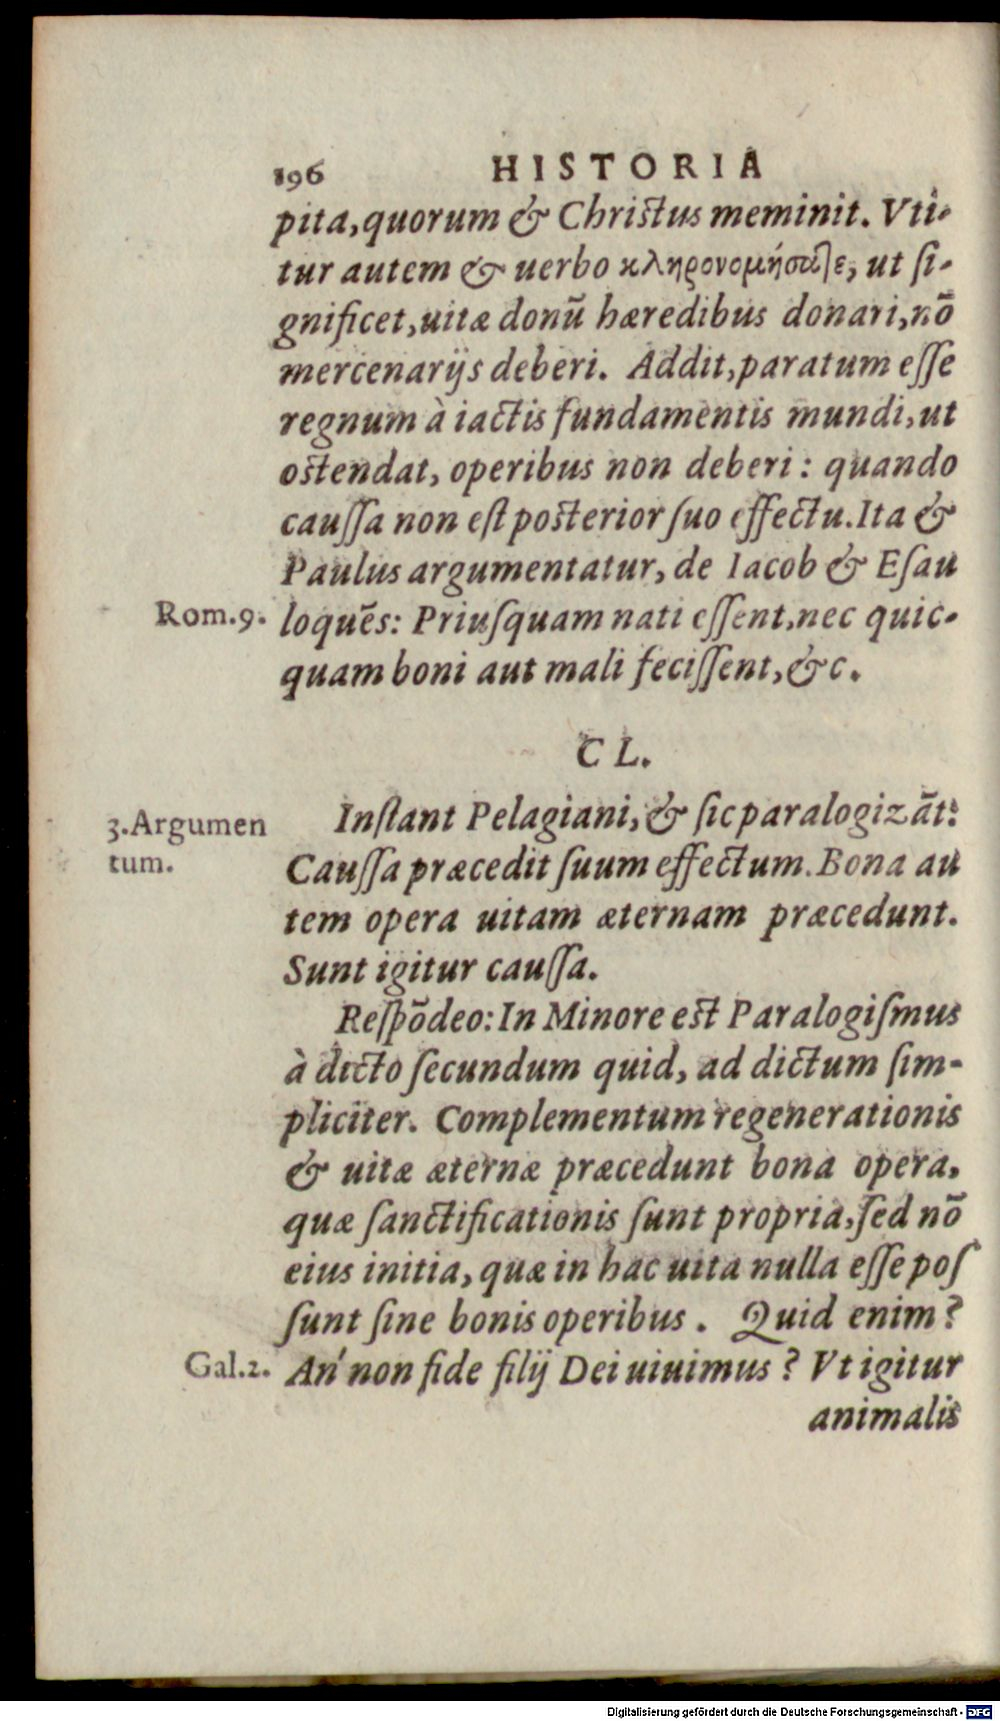 196 HISTORIA
pita, quorum & Christus meminit. Vti-
tur autem & uerbo κληρονομήσατε, ut ſi-
gnificet, uitæ donū hæredibus donari, nō
mercenarijs deberi. Addit, paratum eſſe
regnum à iactis fundamentis mundi, ut
ostendat, operibus non deberi: quando
cauſſa non eſt posterior ſuo effectu. Ita &
Paulus argumentatur, de Iacob & Eſau
Rom.9. loquēs: Priuſquam nati eſſent, nec quic-
quam boni aut mali feciſſent, &c.
CL.
3. Argumen
tum.
Inſtant Pelagiani, & ſic paralogizāt:
Cauſſa præcedit ſuum effectum. Bona au
tem opera uitam æternam præcedunt.
Sunt igitur cauſſa.
Reſpōdeo: In Minore est Paralogiſmus
à dicto ſecundum quid, ad dictum ſim-
pliciter. Complementum regenerationis
& uitæ æternæ præcedunt bona opera,
quæ ſanctificationis ſunt propria, ſed nō
eius initia, quæ in hac uita nulla eſſe poſ
ſunt ſine bonis operibus. Quid enim?
Gal.2. An' non fide filij Dei uiuimus? Vt igitur
animalis
Digitalisierung gefördert durch die Deutsche Forschungsgemeinschaft - DFG